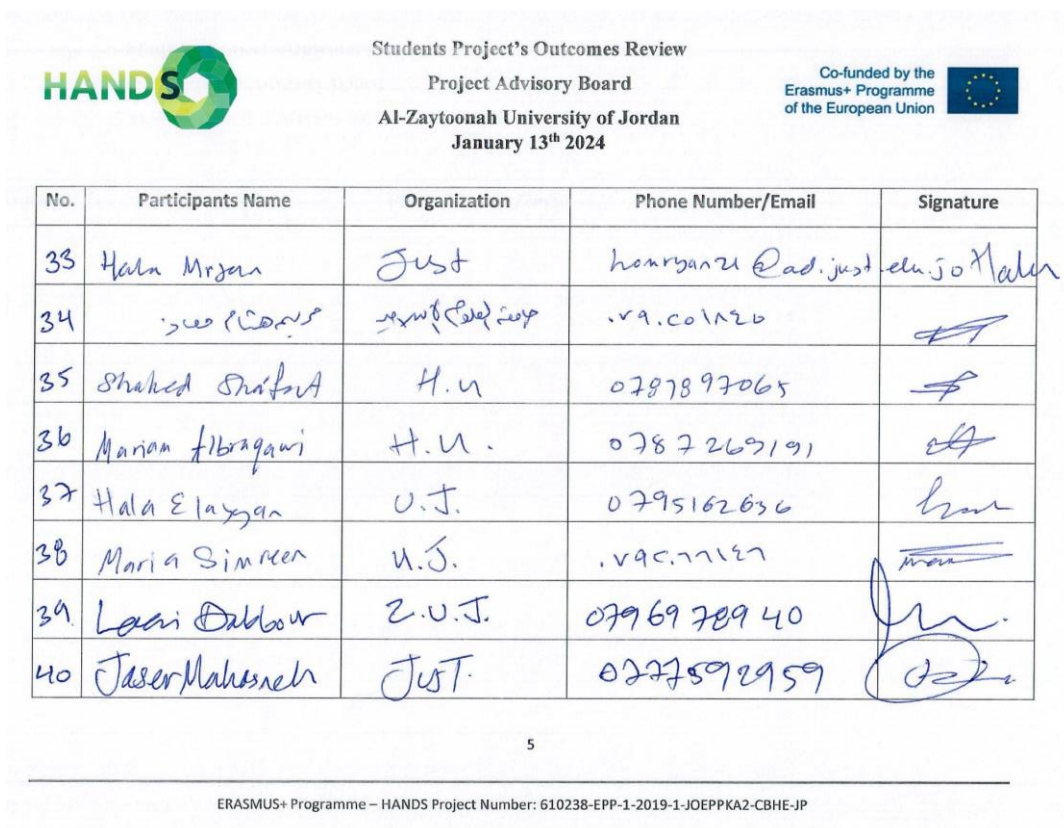 HANDS
Students Project's Outcomes Review
Project Advisory Board
Al-Zaytoonah University of Jordan
January 13th 2024
Co-funded by the
Erasmus+ Programme
of the European Union
No. Participants Name Organization Phone Number/Email Signature
33 Hala Mrjan Just @ad.just.edu.jo Hala
34
35 Shahed H.U 0787897065
36 Mariam Albraqawi H.U. 0787269191
37 Hala Elayyan U.J. 0795162636
38 Maria Simreen U.J.
39 Dabbour Z.U.J. 0796978940
40 Jaser Mahasneh JUST. 0777592959
5
ERASMUS+ Programme – HANDS Project Number: 610238-EPP-1-2019-1-JOEPPKA2-CBHE-JP